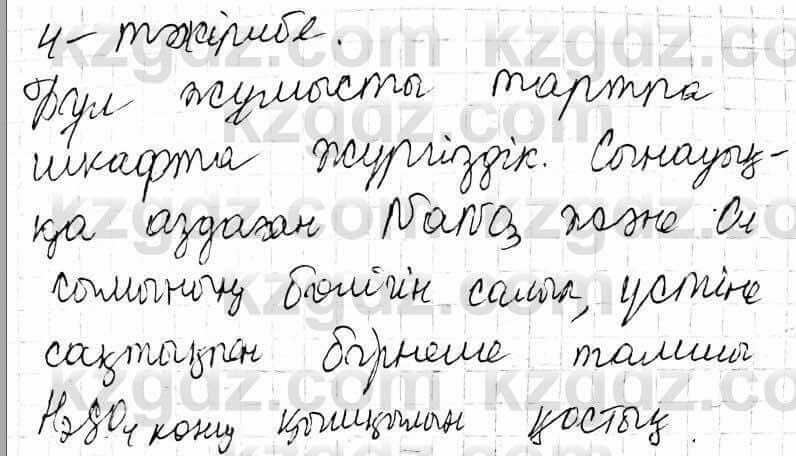 4- тәжірибе.
Бұл жұмысты тартпа
шкафта жүргіздік. Сынауық-
қа аздаған NaNO3 және Cu
сымының бөлігін салып, үстіне
сақтықпен бірнеше тамшы
H2SO4 конц қышқылын қостық.
kzgdz.com